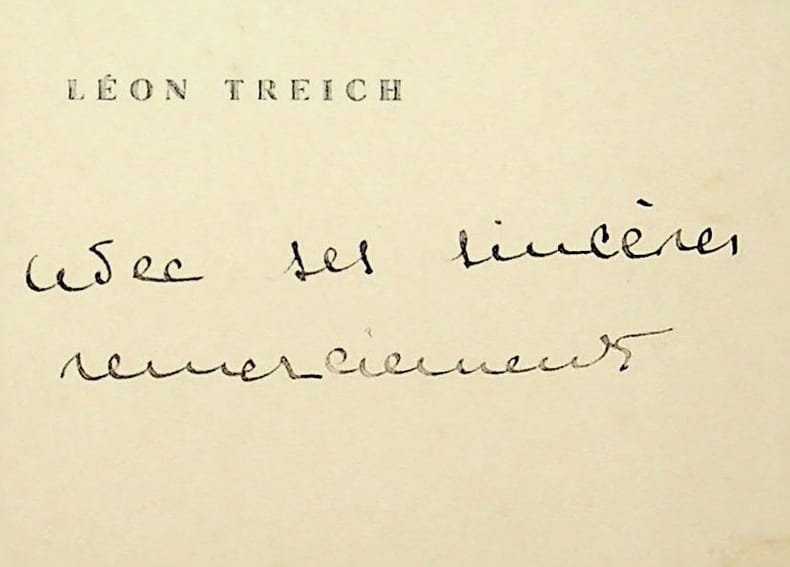 LÉON TREICH
avec ses sincères
remerciements